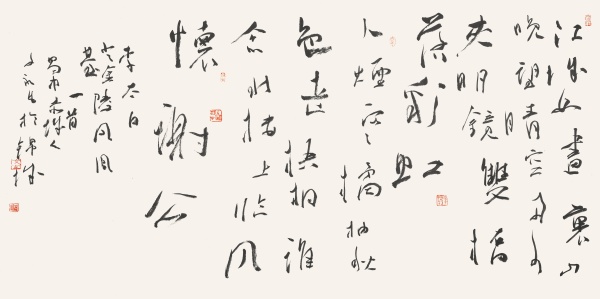 江城如畫裏山
晚望晴空兩水
夾明鏡雙橋
落彩虹
人煙寒橘柚秋
色老梧桐誰
念北樓上臨風
懷謝公
李太白
登金陵鳳凰
臺一首
蜀
於錦城